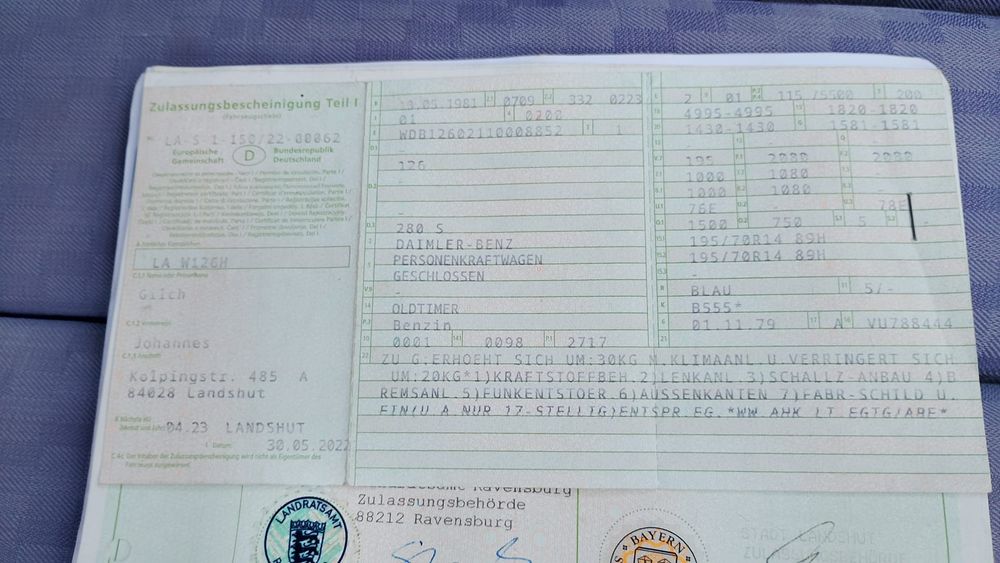 Zulassungsbescheinigung Teil I
(Fahrzeugschein)
LA S 1-150/22-00062
Europäische Gemeinschaft
D
Bundesrepublik Deutschland
LA W126H
Gilch
Johannes
Kolpingstr. 485 A
84028 Landshut
04.23 LANDSHUT
30.05.2022
C.4c Der Inhaber der Zulassungsbescheinigung wird nicht als Eigentümer des Fahrzeugs ausgewiesen.
19.05.1981 0709 332 0223
01 0200
WDB12602110008852 1
126
280 S
DAIMLER-BENZ
PERSONENKRAFTWAGEN
GESCHLOSSEN
OLDTIMER
Benzin
0001 0098 2717
2 01 115 /5500 200
4995-4995 1820-1820
1430-1430 1581-1581
195 2080 2080
1000 1080 -
1000 1080 -
76E 78E
1500 750 5 -
195/70R14 89H
195/70R14 89H
-
BLAU 5/-
B555*
01.11.79 A VU788444
ZU G.ERHOEHT SICH UM:30KG M.KLIMAANL.U.VERRINGERT SICH
UM:20KG*1)KRAFTSTOFFBEH.2)LENKANL 3)SCHALLZ-ANBAU 4)B
REMSANL.5)FUNKENTSTOER.6)AUSSENKANTEN 7)FABR-SCHILD U.
FIN(U A NUR 17-STELLIG)ENTSPR.EG.*WW AHK LT EGTG/ABE*
Ravensburg
Zulassungsbehörde
88212 Ravensburg
LANDRATSAMT
BAYERN
STADT LANDSHUT
ZULASSUNGSBEHÖRDE